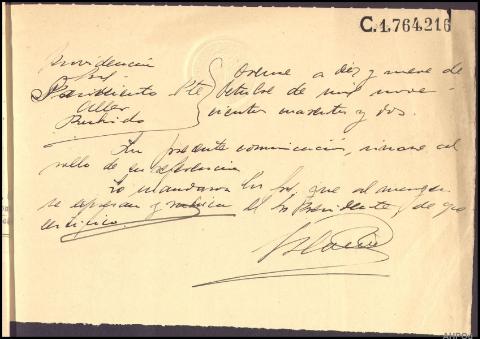 C.1,764,216
Providencia
Sres
Presidente
Uller
Pulido
Orense a diez y nueve de
octubre de mil nove-
cientos cuarenta y dos.
La presente comunicación, únase al
rollo de su referencia
Lo mandaron los Sres que al margen
se expresan y rubrica el Sr Presidente, de que
certifico.